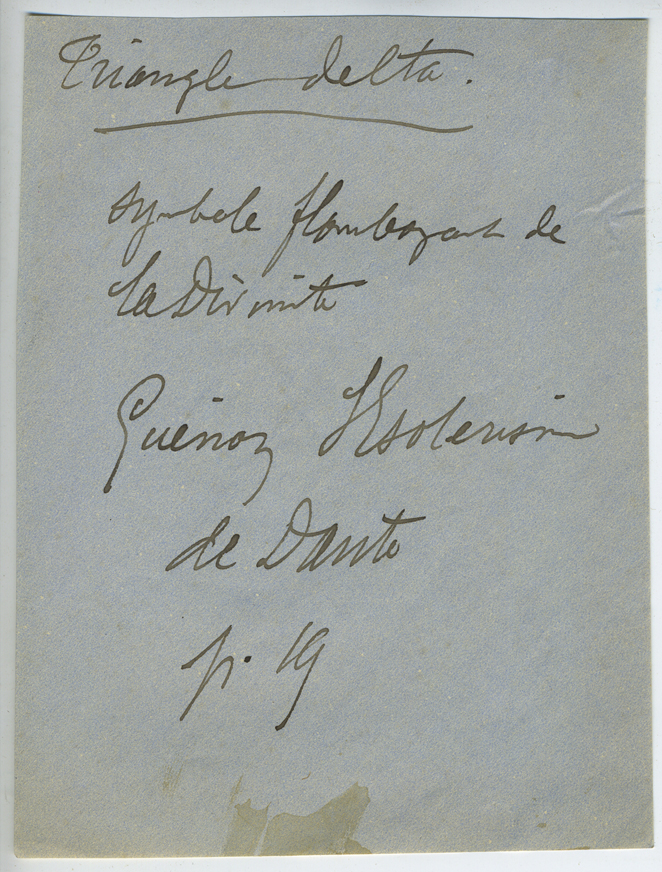 Triangle delta.
symbole flamboyant de
la Divinité
Guénon l'Esoterism
de Dante
p. 19